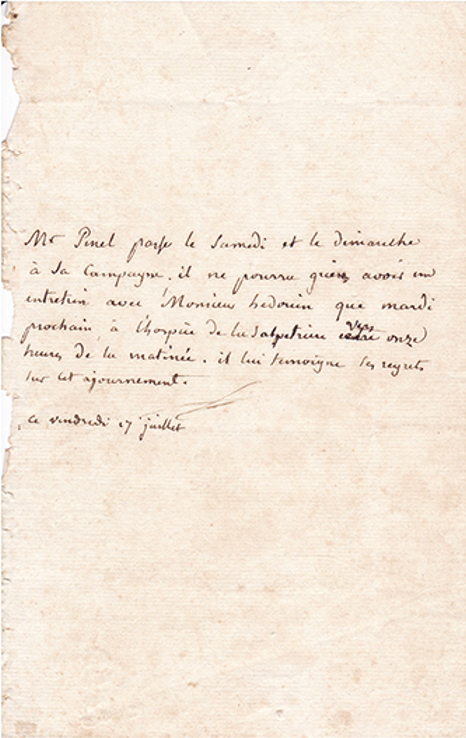 Mr Pinel passe le Samedi et le dimanche
à sa Campagne. il ne pourra guères avoir un
entretien avec Monsieur hedouin que mardi
prochain à l'hospice de la Salpetriere vers onze
heures de la matinée. il lui temoigne ses regrets
sur cet ajournement.
ce vendredi 17 juillet